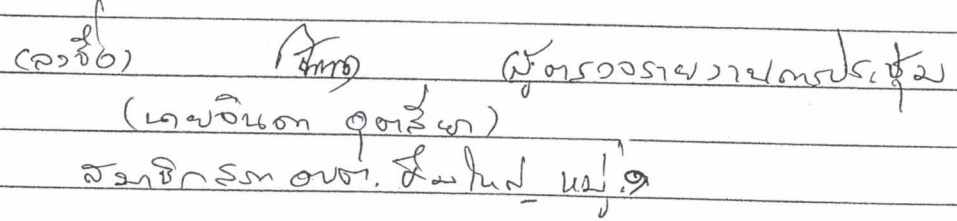 (ลงชื่อ) ผู้ตรวจรายงานการประชุม
(นายจินดา อุตสียา)
สมาชิกสภา อบต. ชึมใหญ่ หมู่.๑